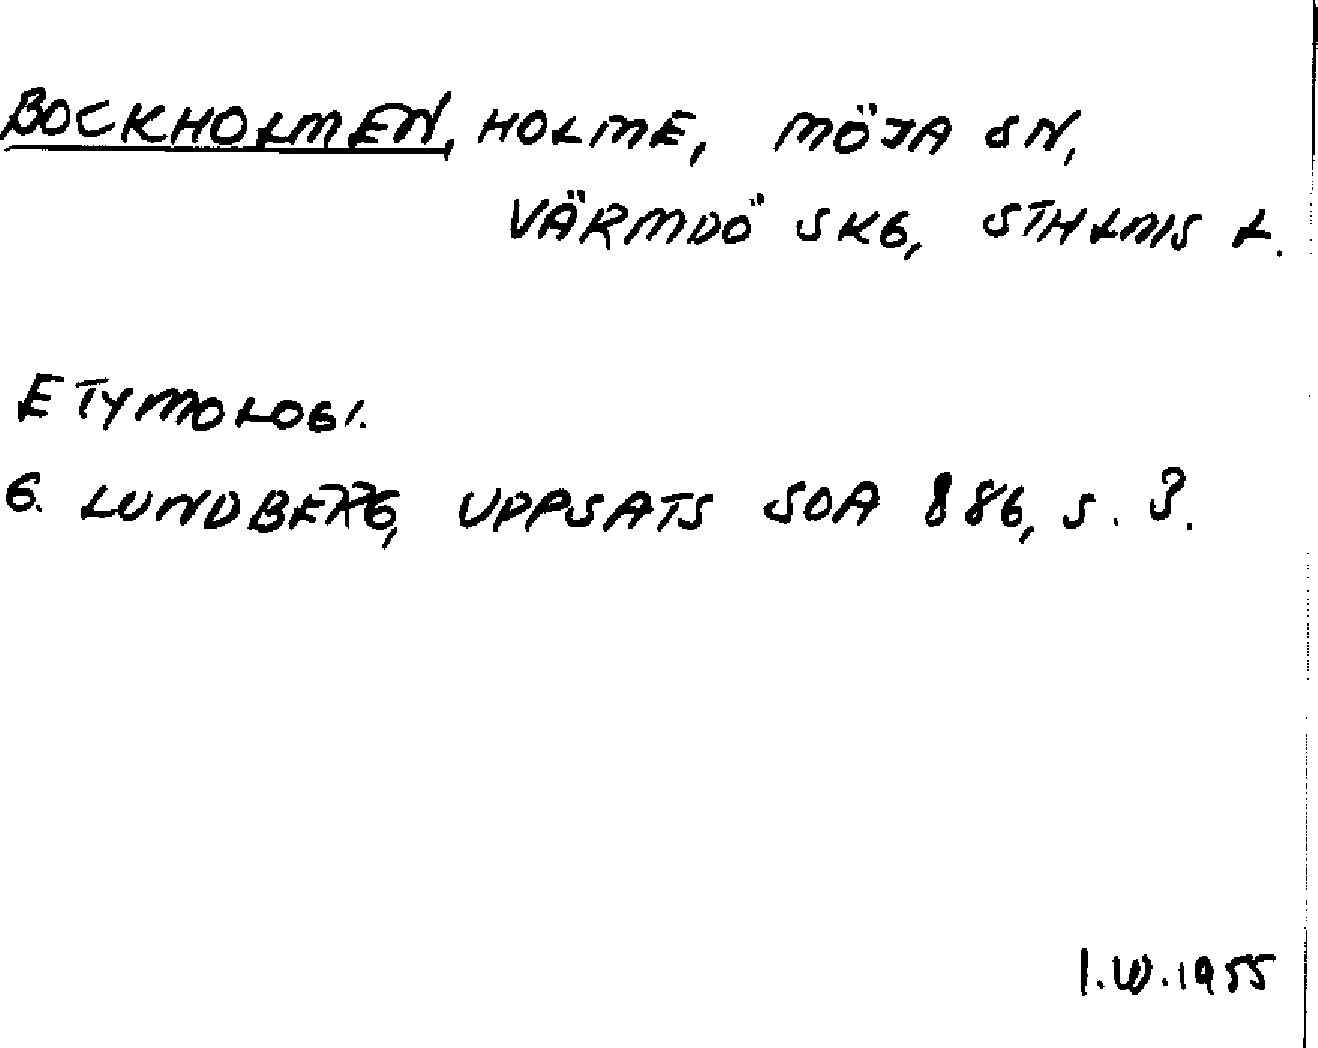 BOCKHOLMEN, HOLME, MÖJA SN,
VÄRMDÖ SKG, STHLMS L.
ETYMOLOGI.
G. LUNDBERG, UPPSATS SOA 886, s.
I.W.1955